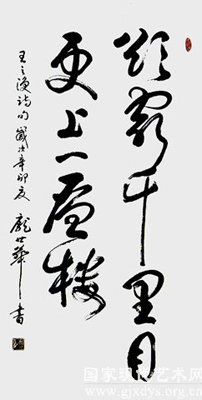 欲穷千里目
更上一层楼
王之渙诗句 歲次辛卯夏 龐世華書
国家现代艺术网
www.gjxdys.org.cn